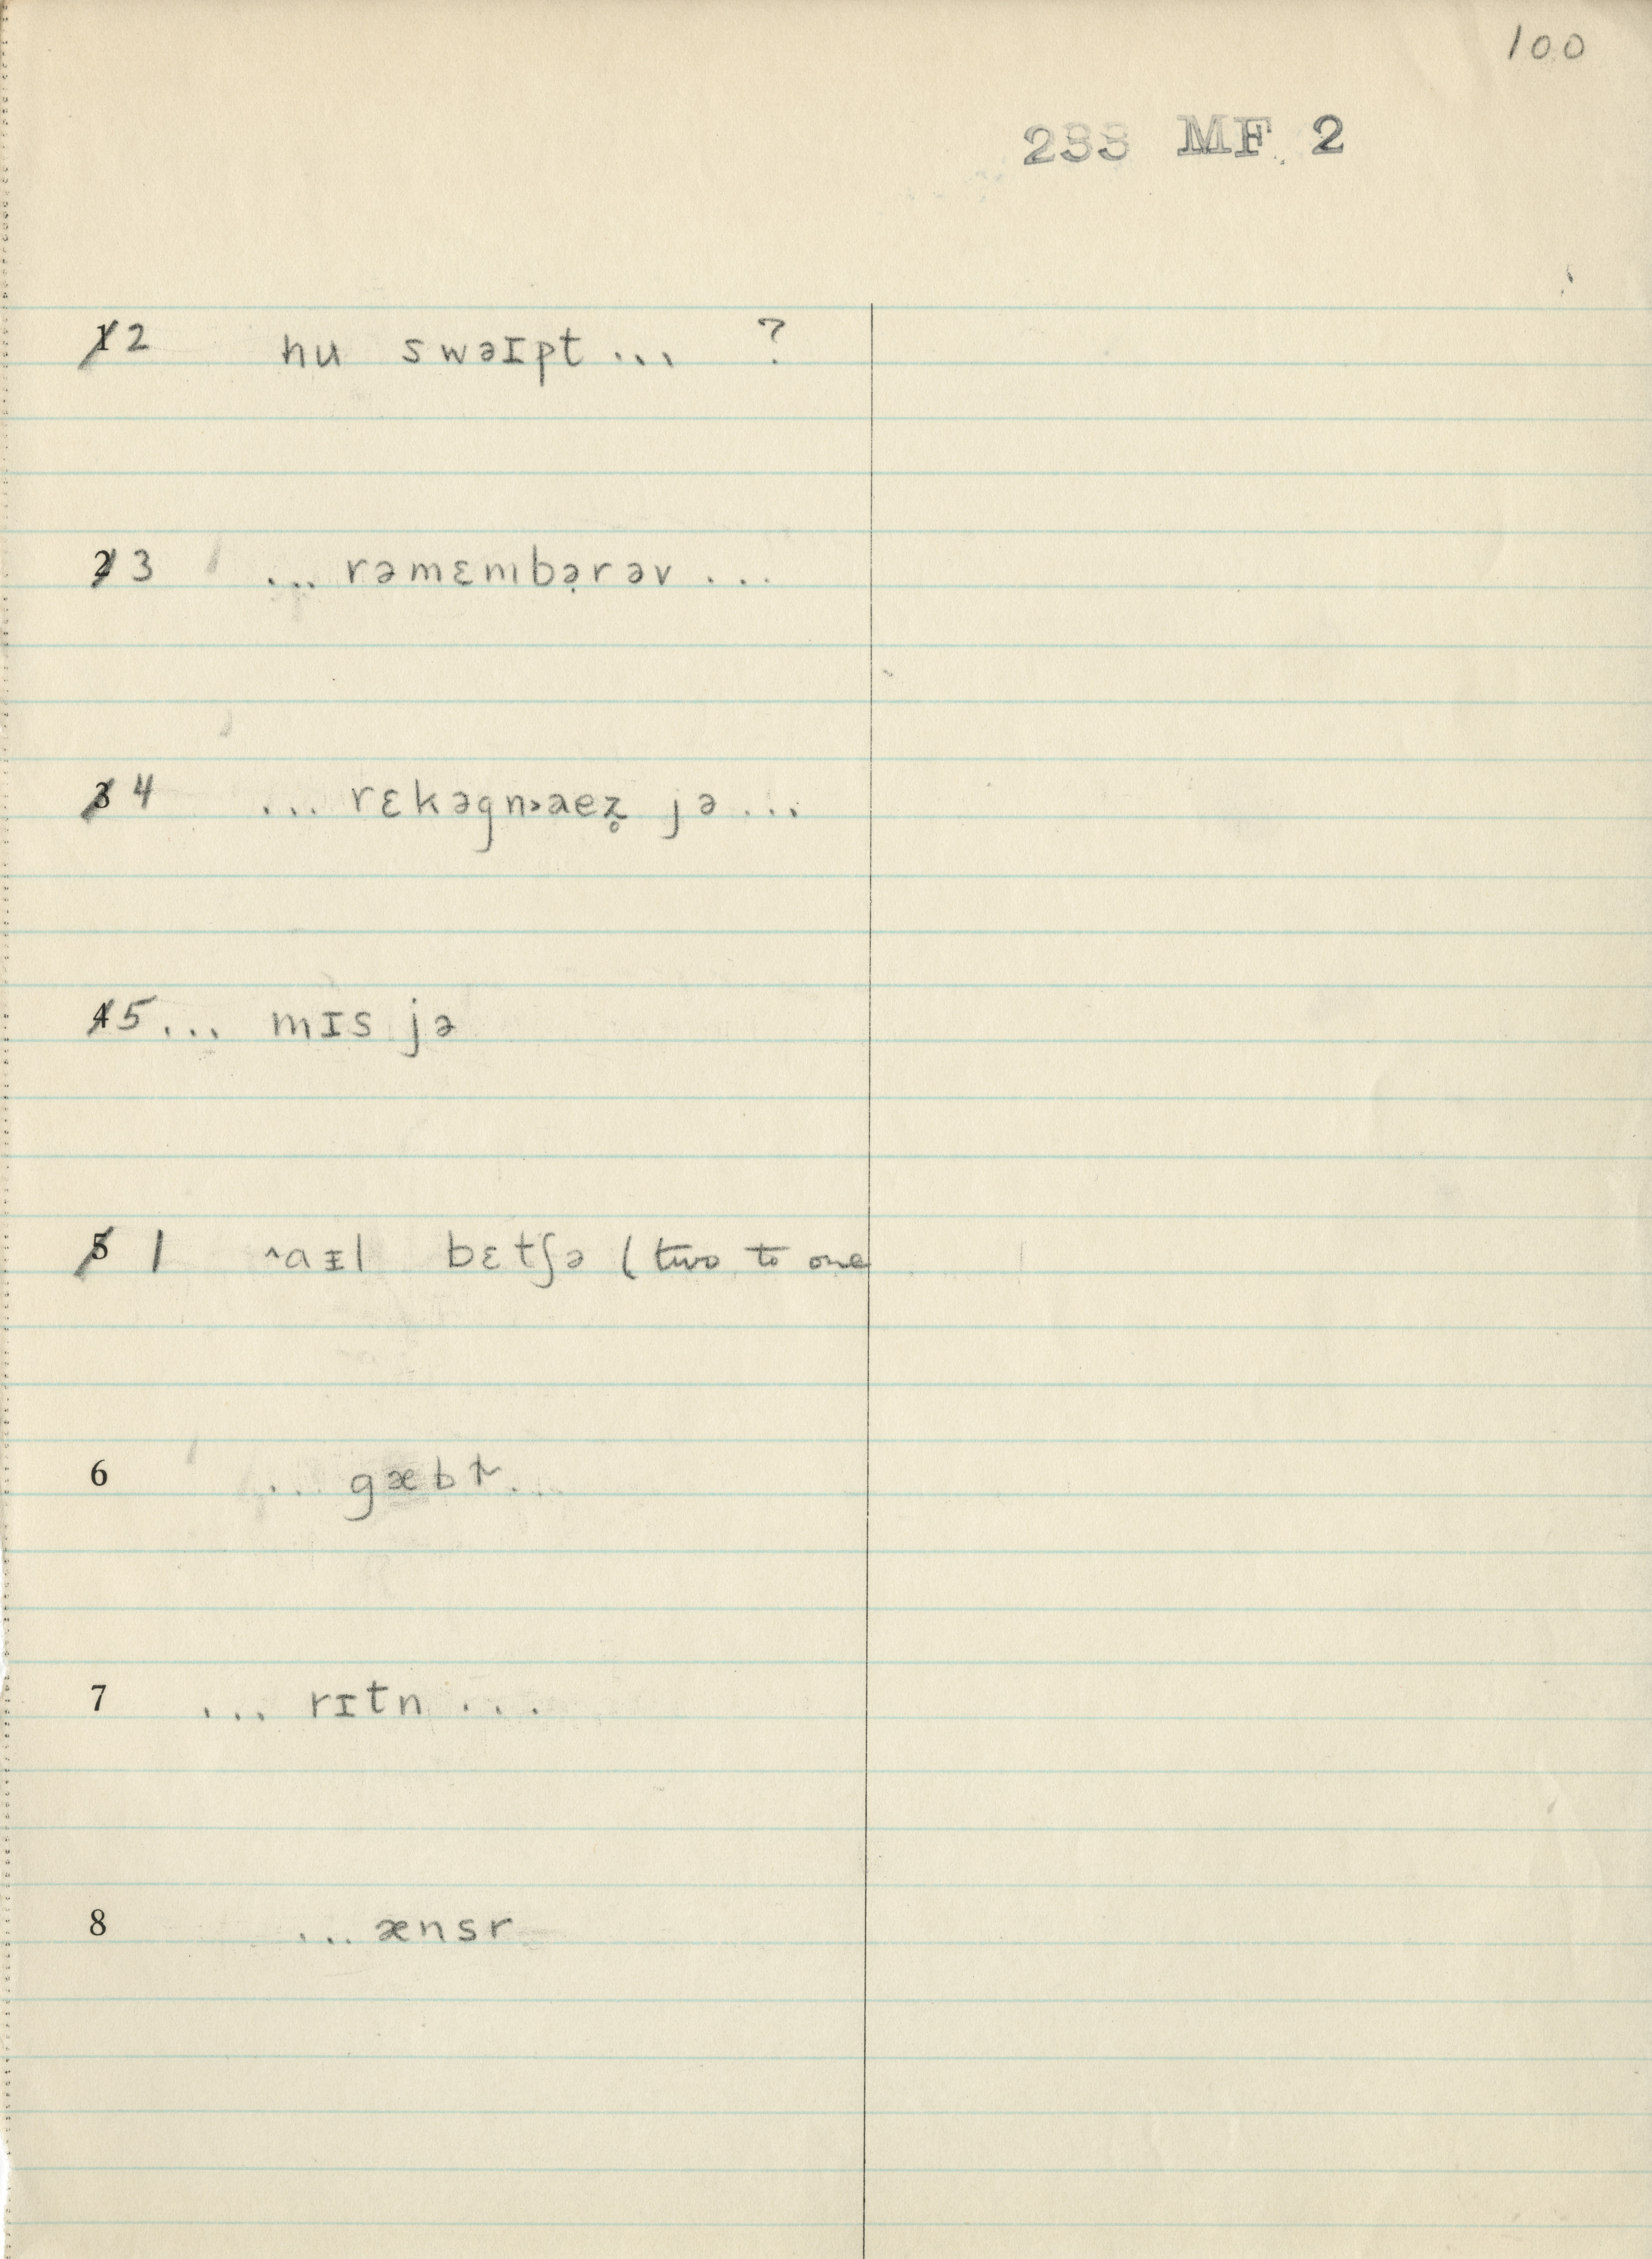 100
233 MF 2
1 2 hu swəɪpt ... ?
2 3 ... rəmɛmbə̣rəv ...
3 4 ... rɛkəgn›aez̥ jə ...
4 5 ... mɪs jə
5 1 ˄aɪl bɛtʃə (two to one
6 ... gæb ...
7 ... rɪtn ...
8 ... ænsr